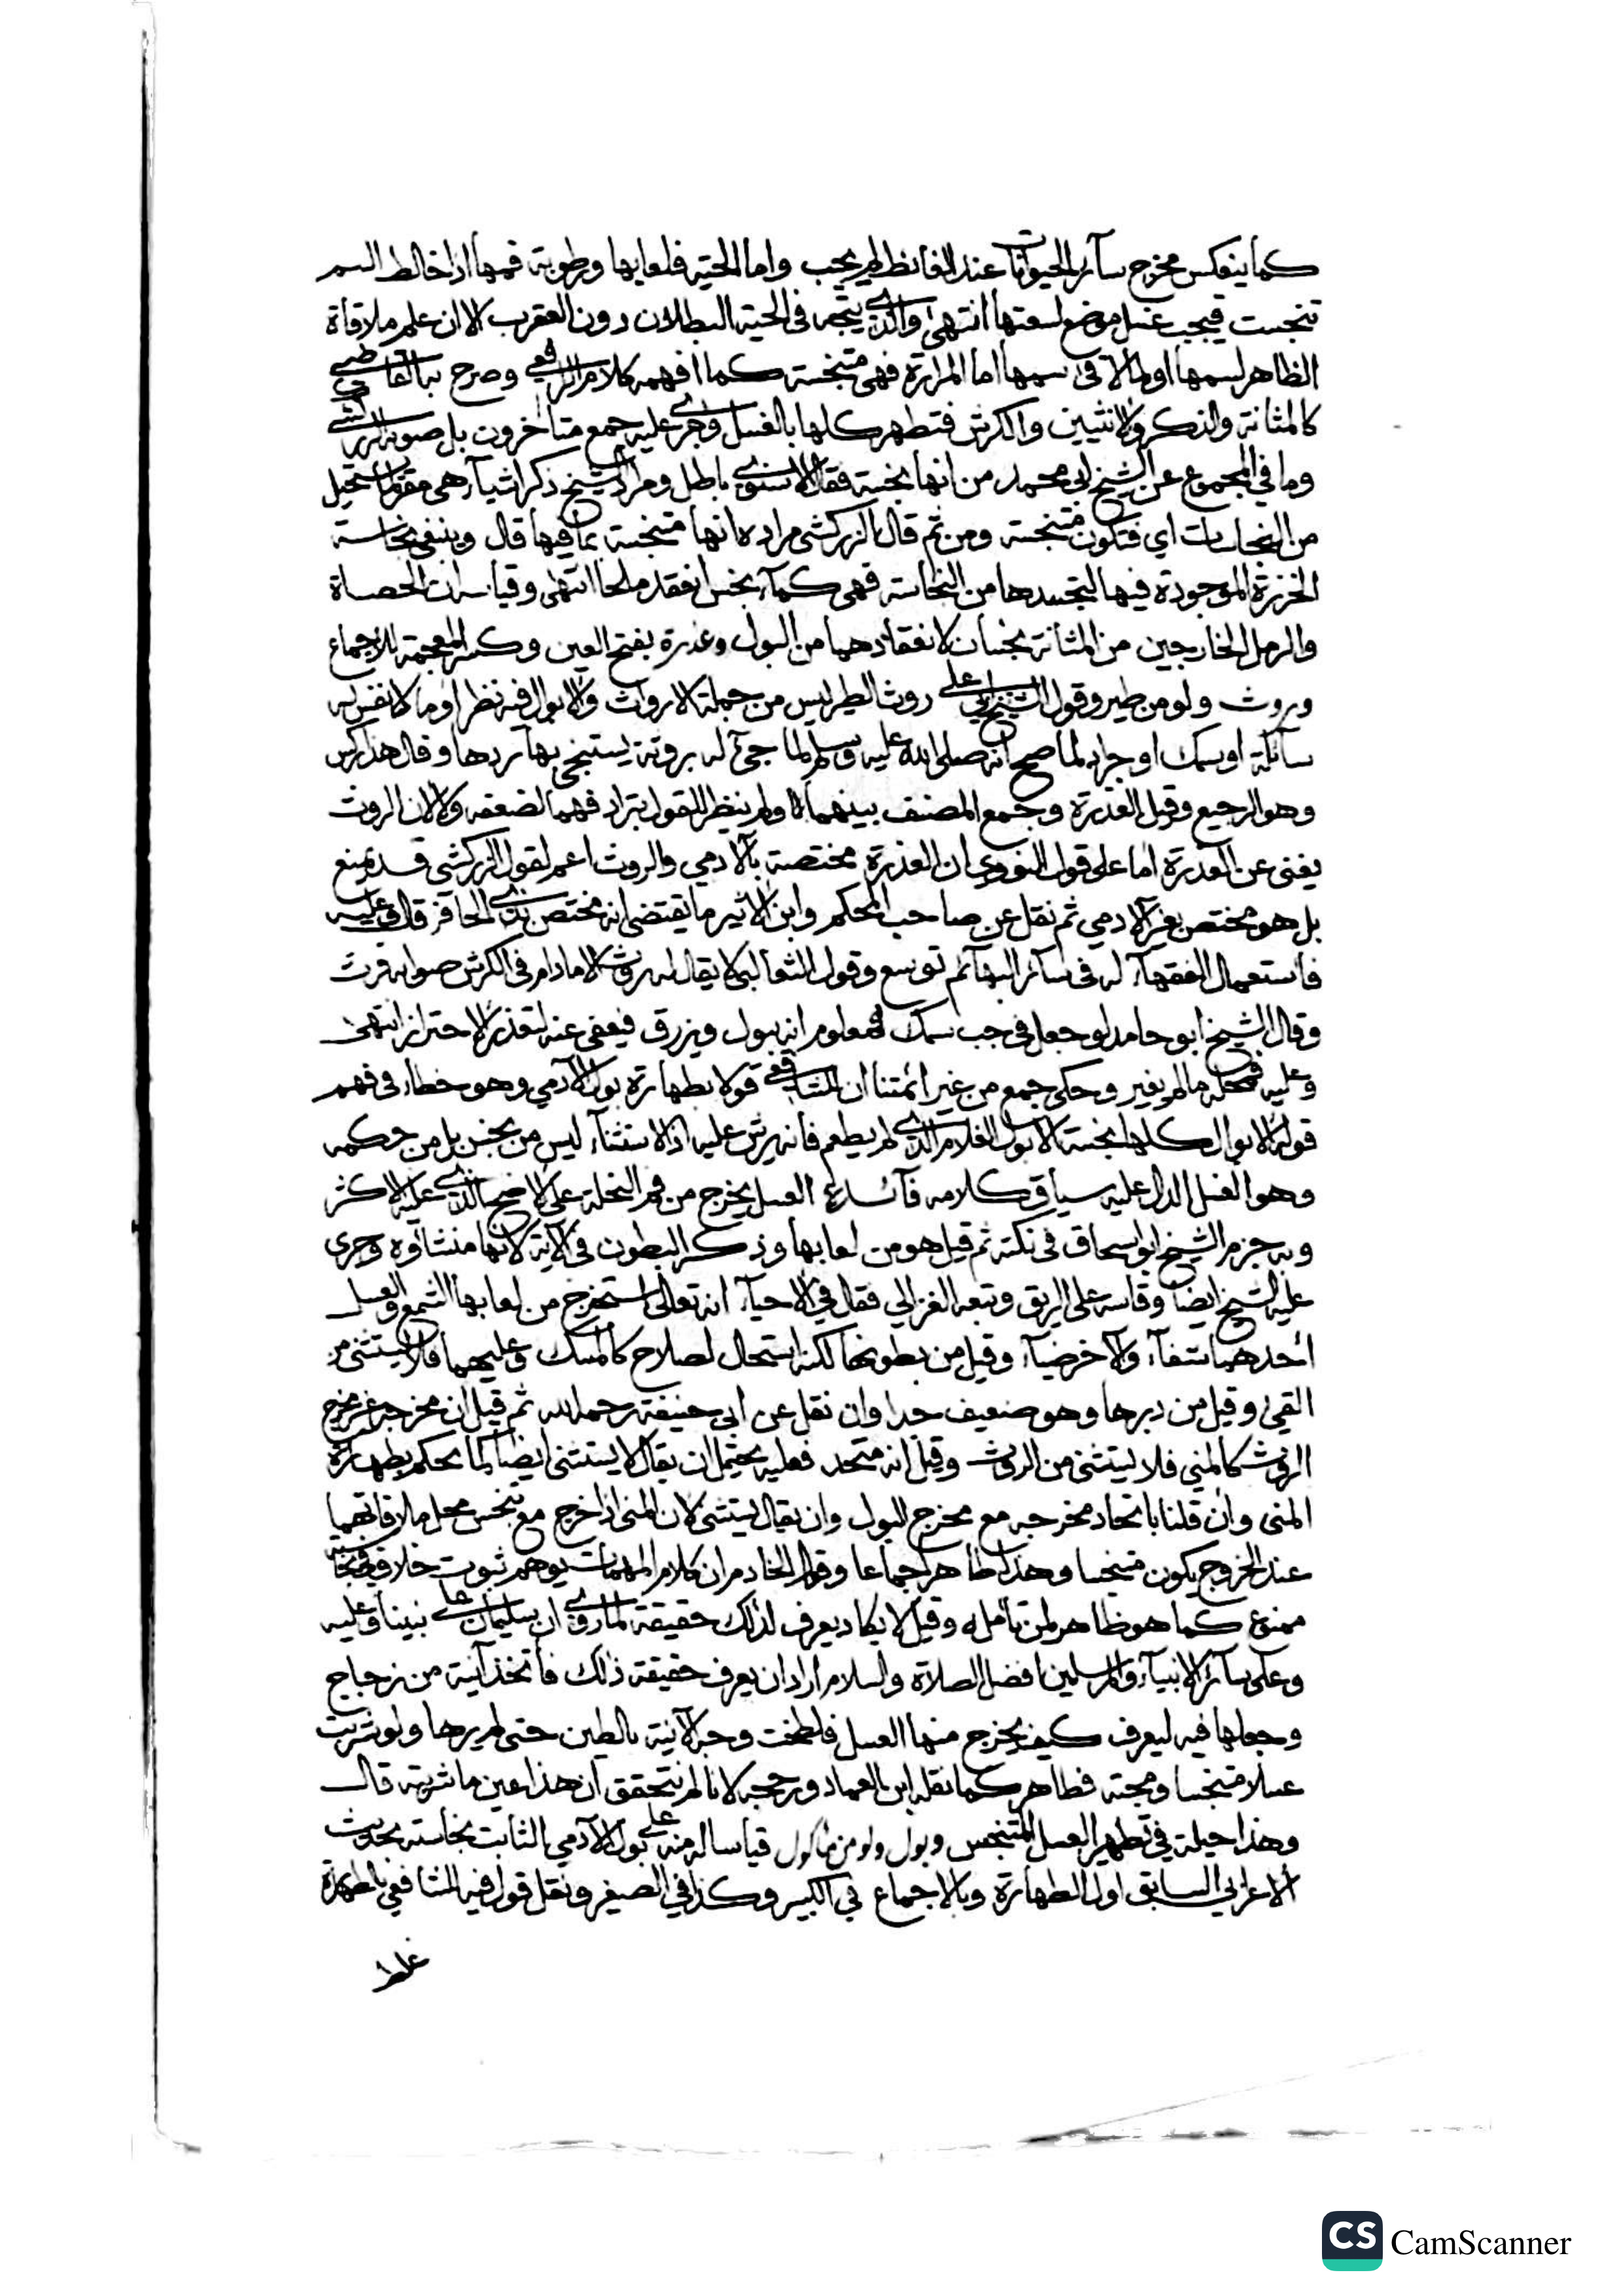 كما ينعكس مخرج سائر الحيوانات عند الغائط لم يجب واما الحية فلعابها ورطوبة فمها اذا خالط السم
تنجست فيجب غسل موضع لسعتها انتهى والذي يتجه في الحية البطلان دون العقرب الا ان علم ملاقاة
الظاهر لسمها او لما لاقى سمها اما المرارة فهي متنجسة كما افهمه كلام الرافعي وصرح به القاضي
كالمثانة والذكر والانثيين والكرش فتطهر كلها بالغسل وجرى عليه جمع متاخرون بل صوبه الزركشي
وما في المجموع عن الشيخ ابي محمد من انها نجسة فقال الاسنوي باطل ومراد الشيخ ذكر اشياء هي مقر لما تستحيل
من النجاسات اي فتكون متنجسة ومن ثم قال الزركشي مراده انها متنجسة بما فيها قال وينبغي نجاسة
الخرزة الموجودة فيها لتجسدها من النجاسة فهي كماء نجس انعقد ملحا انتهى وقياسه ان الحصاة
والرمل الخارجين من المثانة نجسان لانعقادهما من البول وعذرة بفتح العين وكسر المعجمة للاجماع
وروث ولو من طير وقول الشيخ ابي علي روث الطير ليس من جملة الارواث والابوال فيه نظر او ما لا نفس له
سائلة او سمك او جراد لما صح انه صلى الله عليه وسلم لما جيء له بروثة يستنجي بها ردها وقال هذا ركس
وهو الرجيع وقيل العذرة وجمع المصنف بينهما ولم ينظر للقول بترادفهما لضعفه والا لان الروث
يغني عن العذرة اما على قول النووي ان العذرة مختصة بالادمي والروث اعم لقول الزركشي قد يمنع
بل هو مختص بغير الادمي ثم نقل عن صاحب المحكم وابن الاثير ما يقتضي انه مختص بذي الحافر قال وعليه
فاستعمال الفقهاء له في سائر البهائم توسع وقول الثعالبي لا يقال له روث الا ما دام في الكرش صوابه فرث
وقال الشيخ ابو حامد لو جعل في جب سمك فمعلوم انه يبول ويزرق فيعفى عنه لتعذر الاحتراز انتهى
وعليه فمحله ما لم يغير وحكى جمع من غير ائمتنا ان للشافعي قولا بطهارة بول الادمي وهو خطا في فهم
قوله الابوال كلها نجسة الا بول الغلام الذي لم يطعم فانه يرش عليه اذ الاستثناء ليس من نجس بل من حكمه
وهو الغسل الدال عليه سياق كلامه فائدة العسل يخرج من فم النحلة على الاصح الذي عليه الاكثر
وبه جزم الشيخ ابو اسحاق في نكته ثم قيل هو من لعابها وذكر البطون في الاية لانها منشاؤه وجرى
عليه الشيخ ايضا وقاسه على الريق وتبعه الغزالي فقال في الاحياء انه تعالى استخرج من لعابها الشمع والعسل
احدهما شفاء والاخر ضياء وقيل من بطونها لكنه استحال لصلاح كالمسك وعليهما فلا يستثنى من
القيء وقيل من دبرها وهو ضعيف جدا وان نقل عن ابي حنيفة رحمه الله ثم قيل ان مخرجه غير مخرج
الروث كالمني فلا يستثنى من الروث وقيل انه متحد فعليه يحتمل ان يقال لا يستثنى ايضا كما يحكم بطهارة
المني وان قلنا باتحاد مخرجه مع مخرج البول وان يقال يستثنى لان المني اذا خرج مع تنجس محل ملاقاتهما
عند الخروج يكون متنجسا وهذا طاهر اجماعا وقول الخادم ان كلام المهمات يوهم ثبوت خلاف في نجاسته
ممنوع كما هو ظاهر لمن تامله وقيل لا يكاد يعرف لذلك حقيقة لما روي ان سليمان على نبينا وعليه
وعلى سائر الانبياء والمرسلين افضل الصلاة والسلام اراد ان يعرف حقيقة ذلك فاتخذ آنية من زجاج
وجعلها فيه ليعرف كيف يخرج منها العسل فلطخت وجه الآنية بالطين حتى لم يرها ولو شربت
عسلا متنجسا ومجته فطاهر كما نقله ابن العماد ورجحه لانا لم نتحقق ان هذا عين ما شربته قال
وهذا حيلة في تطهير العسل المتنجس وبول ولو من ماكول قياسا له منه على بول الادمي الثابت نجاسته بحديث
الاعرابي السابق اول الطهارة وبالاجماع في الكبير وكذا في الصغير ونقل قول فيه للشافعي بالطهارة
غلط
CS CamScanner